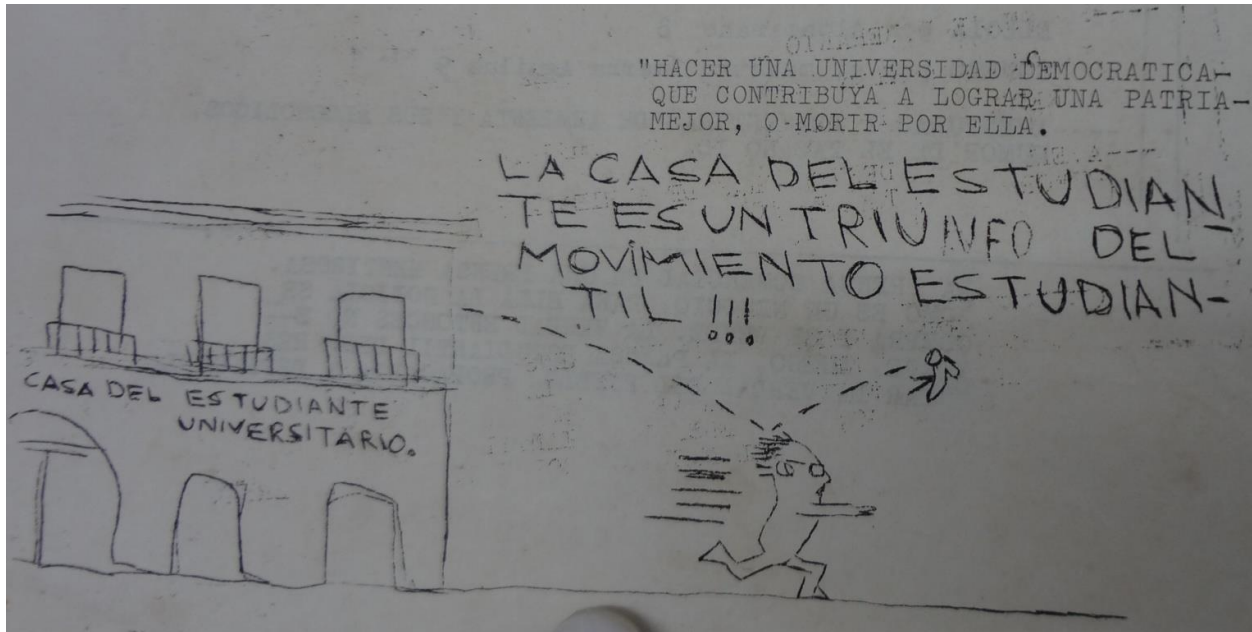 "HACER UNA UNIVERSIDAD DEMOCRATICA-
QUE CONTRIBUYA A LOGRAR UNA PATRIA-
MEJOR, O MORIR POR ELLA.
LA CASA DEL ESTUDIAN
TE ES UN TRIUNFO DEL
MOVIMIENTO ESTUDIAN-
TIL !!!
CASA DEL ESTUDIANTE
UNIVERSITARIO.